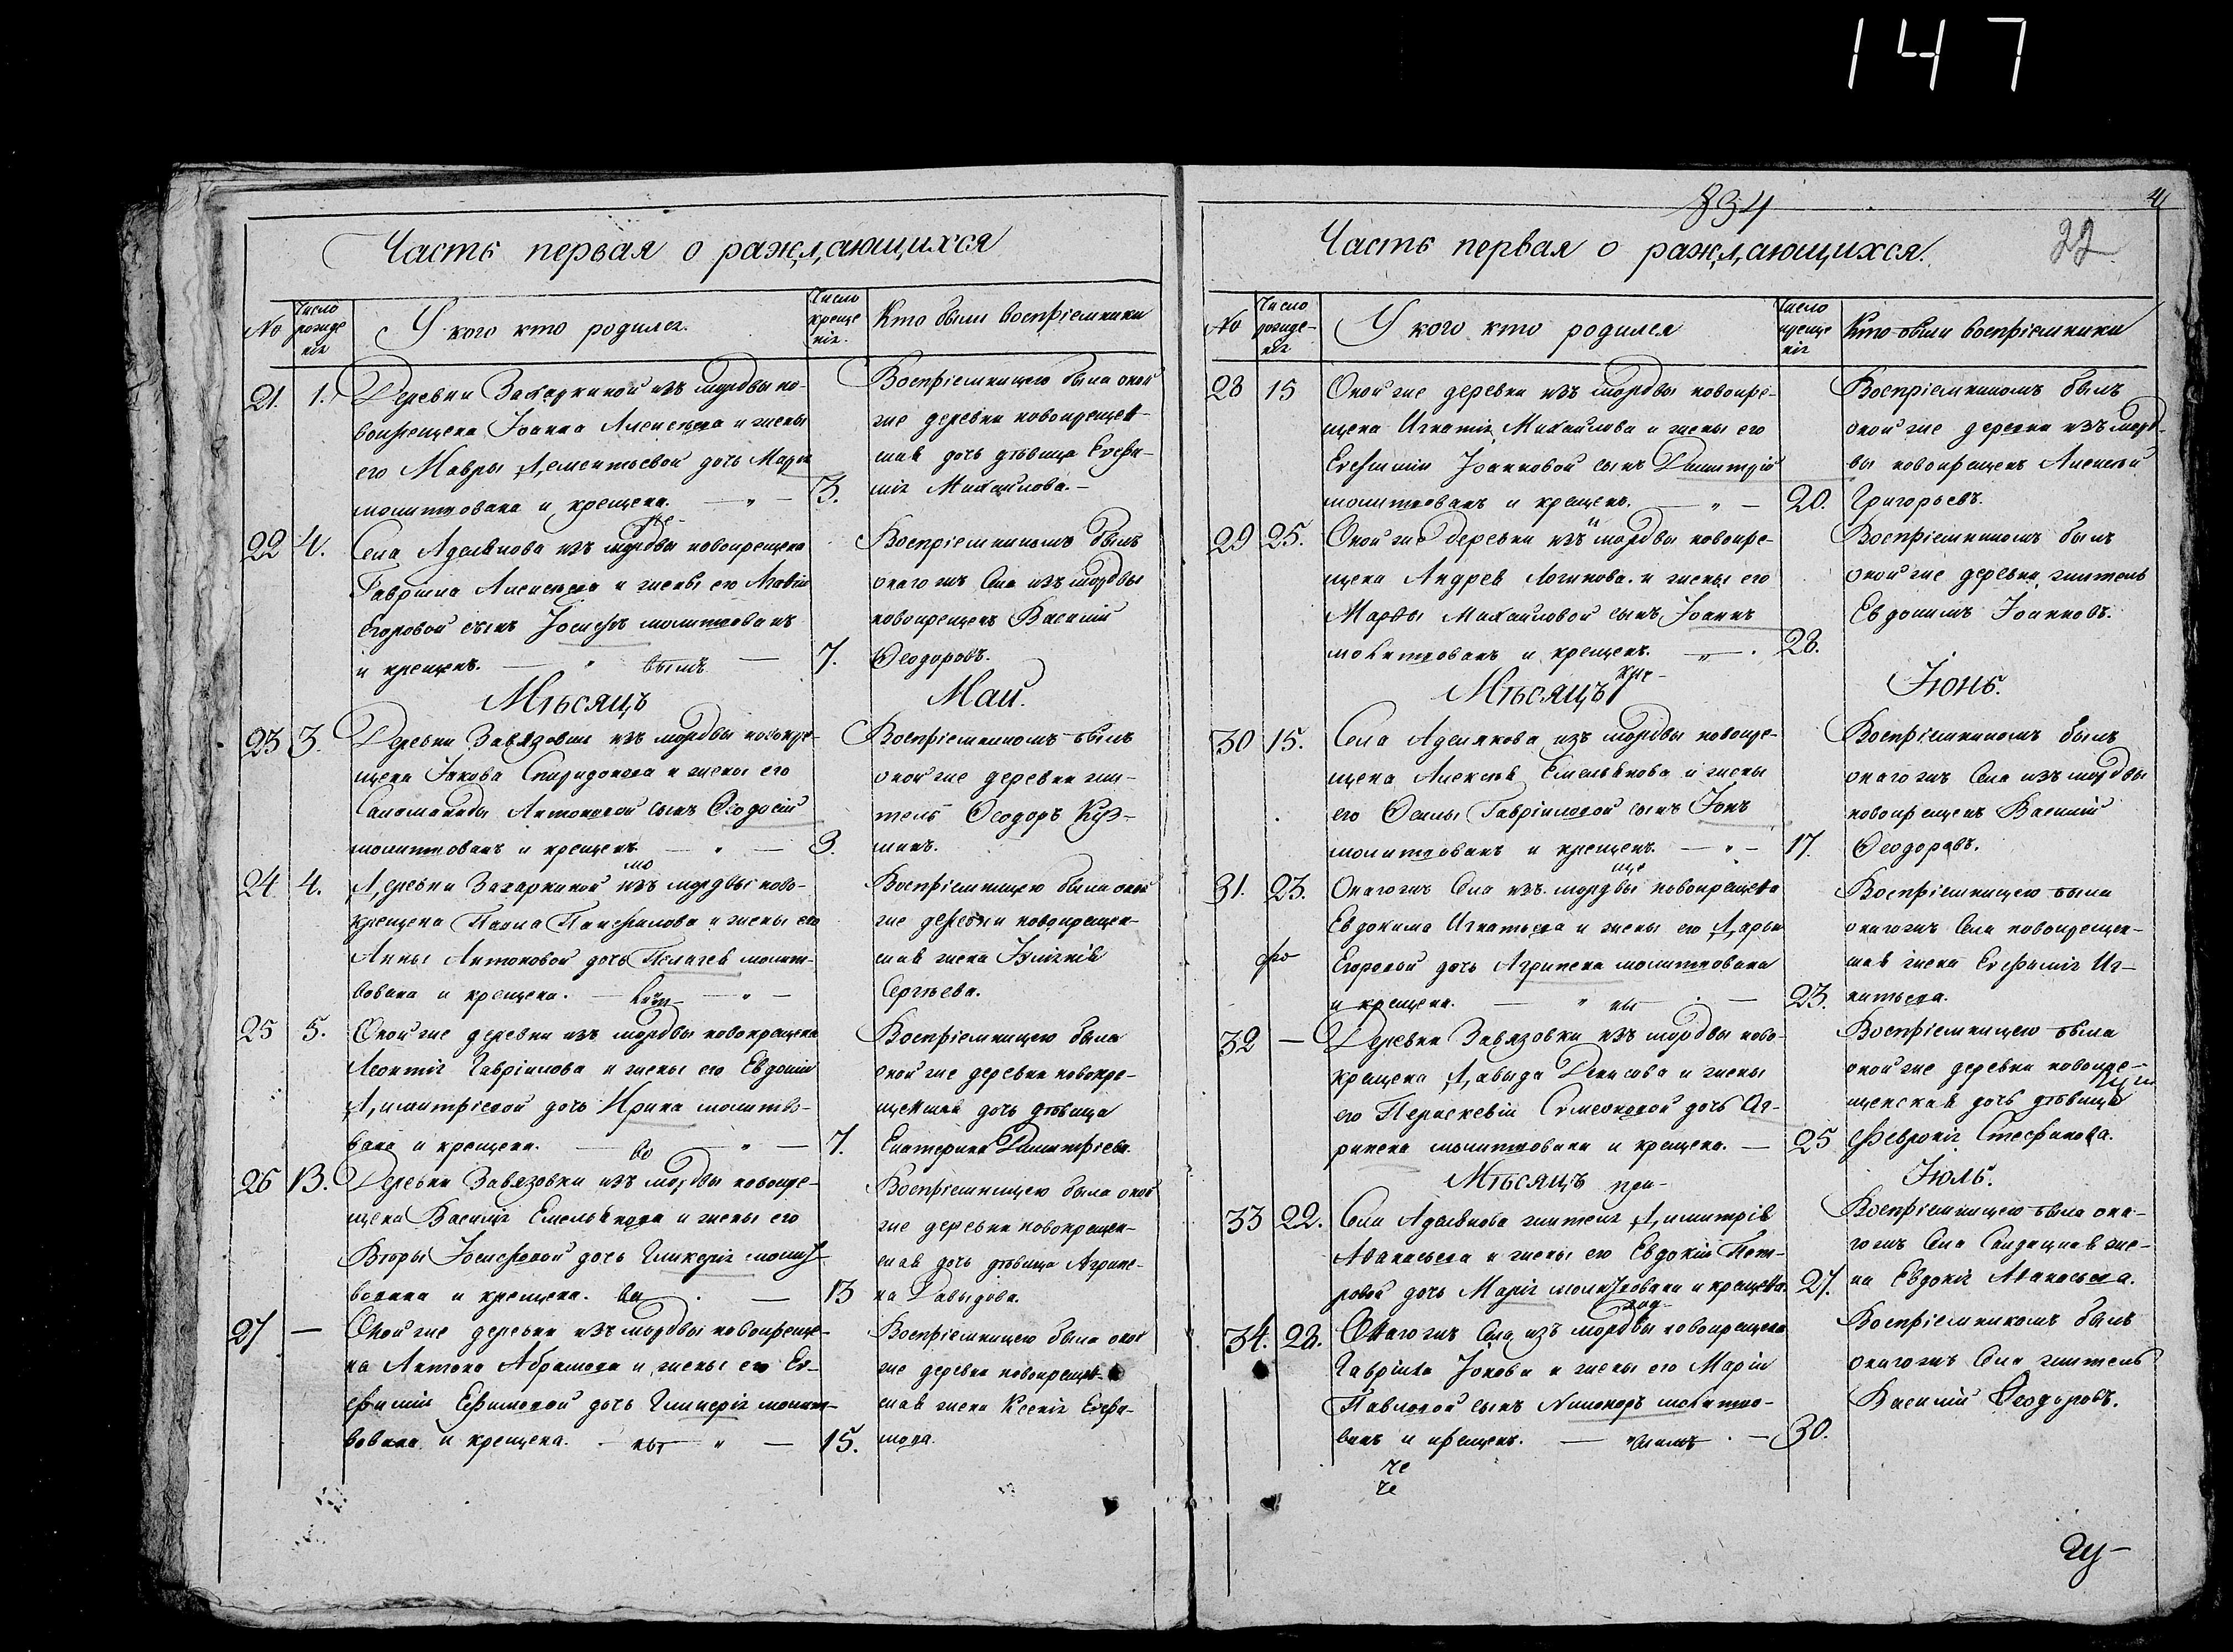 147
Часть первая о раждающихся
No
Число рожде нія
У кого кто родился.
Число креще нія.
Кто были воспріемники
21. 1. Деревни Захаркиной изъ мордвы но-
вокрещена Іоанна Алексѣева и жены
его Мавры Дементьевой дочь Марѳа
молитвована и крещена. — „ — 3.
Воспріемницею была оной
же деревни новокрещен-
ская дочь дѣвица Евфи-
мія Михайлова.-
22 4. Села Аделякова изъ мордвы новокрещена
Гавріила Алексѣева и жены его
Егоровой сынъ Іосифъ молитвованъ
и крещенъ. — „ — 7.
Воспріемникомъ былъ
онаго жъ села изъ мордвы
новокрещенъ Василій
Ѳеодоровъ.
Мѣсяцъ Май.
23 3. Деревни Завязовки изъ мордвы новокре-
щена Іакова Спиридонова и жены его
Саломониды Антоновой сынъ Ѳеодосій
молитвованъ и крещенъ. — „ — 3.
Воспріемникомъ былъ
оной же деревни жи-
тель Ѳеодоръ Куз-
минъ.
24 4. Деревни Захаркиной изъ мордвы ново-
крещена Павла Панфилова и жены его
Анны Антоновой дочь Пелагея молит-
вована и крещена. — „ —
Воспріемницею была оной
же деревни новокрещен-
ская жена
Сергѣева.
25 5. Оной же деревни изъ мордвы новокрещена
Леонтія Гавріилова и жены его Евдокіи
Димитріевой дочь Ирина молитво-
вана и крещена. — „ — 7.
Воспріемницею была
оной же деревни новокре-
щенная дочь дѣвица
Екатерина Димитріева.
26 13. Деревни Завязовки изъ мордвы новокре-
щена Василія Емельянова и жены его
Вѣры Іосифовой дочь Гликерія молит-
вована и крещена. — 13
Воспріемницею была оной
же деревни новокрещен-
ская дочь дѣвица Агрипе-
на Давыдова.
27 — Оной же деревни изъ мордвы новокреще-
на Антона Абрамова и жены его Ев-
фиміи Ефимовой дочь Гликерія молит-
вована и крещена. — „ — 15.
Воспріемницею была оной
же деревни новокрещен-
ская жена Ксенія Евфи-
мова.
834
22
Часть первая о раждающихся.
No
Число рожде- нія
У кого кто родился
Число креще нія
Кто были воспріемники
28 15 Оной же деревни изъ мордвы новокре-
щена Игнатія Михайлова и жены его
Евфиміи Іоанновой сынъ Димитрій
молитвованъ и крещенъ. — „ — 20.
Воспріемникомъ былъ
оной же деревни изъ морд-
вы новокрещенъ Алексѣй
Григорьевъ.
29 25. Оной же деревни изъ мордвы новокре-
щена Андрея Логинова и жены его
Марѳы Михайловой сынъ Іоаннъ
молитвованъ и крещенъ. „ . 28.
Воспріемникомъ былъ
оной же деревни житель
Евдокимъ Іоанновъ.
Мѣсяцъ Іюнь.
30 15. Села Аделякова изъ мордвы новокре-
щена Алексѣя Емельянова и жены
его Ѳеклы Гавріиловой сынъ Іонъ
молитвованъ и крещенъ. — „ — 17.
Воспріемникомъ былъ
онаго жъ села изъ мордвы
новокрещенъ Василій
Ѳеодоровъ.
31. 23. Онаго жъ села изъ мордвы новокрещена
Евдокима Игнатьева и жены его Дарьи
Егоровой дочь Агрипена молитвована
и крещена. — „ — 23.
Воспріемницею была
онаго жъ села новокрещен-
ная жена Евфимія Иг-
натьева.
32 — Деревни Завязовки изъ мордвы ново-
крещена Давыда Денисова и жены
его Перасковіи Симеоновой дочь Аг-
рипена молитвована и крещена. — 25
Воспріемницею была
оной же деревни новокре-
щенская дочь дѣвица
Февронія Стефанова.
Мѣсяцъ Іюль.
33 22. Села Аделякова жителя Димитрія
Аѳанасьева и жены его Евдокіи Пет-
ровой дочь Марія молитвована и крещена. 27.
Воспріемницею была она-
го жъ села же-
на Евдокія Аѳанасьева.
34. 28. Онаго жъ села изъ мордвы новокрещена
Гавріила Іовова и жены его Маріи
Павловой сынъ Никоноръ молитво-
ванъ и крещенъ. — „ — 30.
Воспріемникомъ былъ
онаго жъ села житель
Василій Ѳеодоровъ.